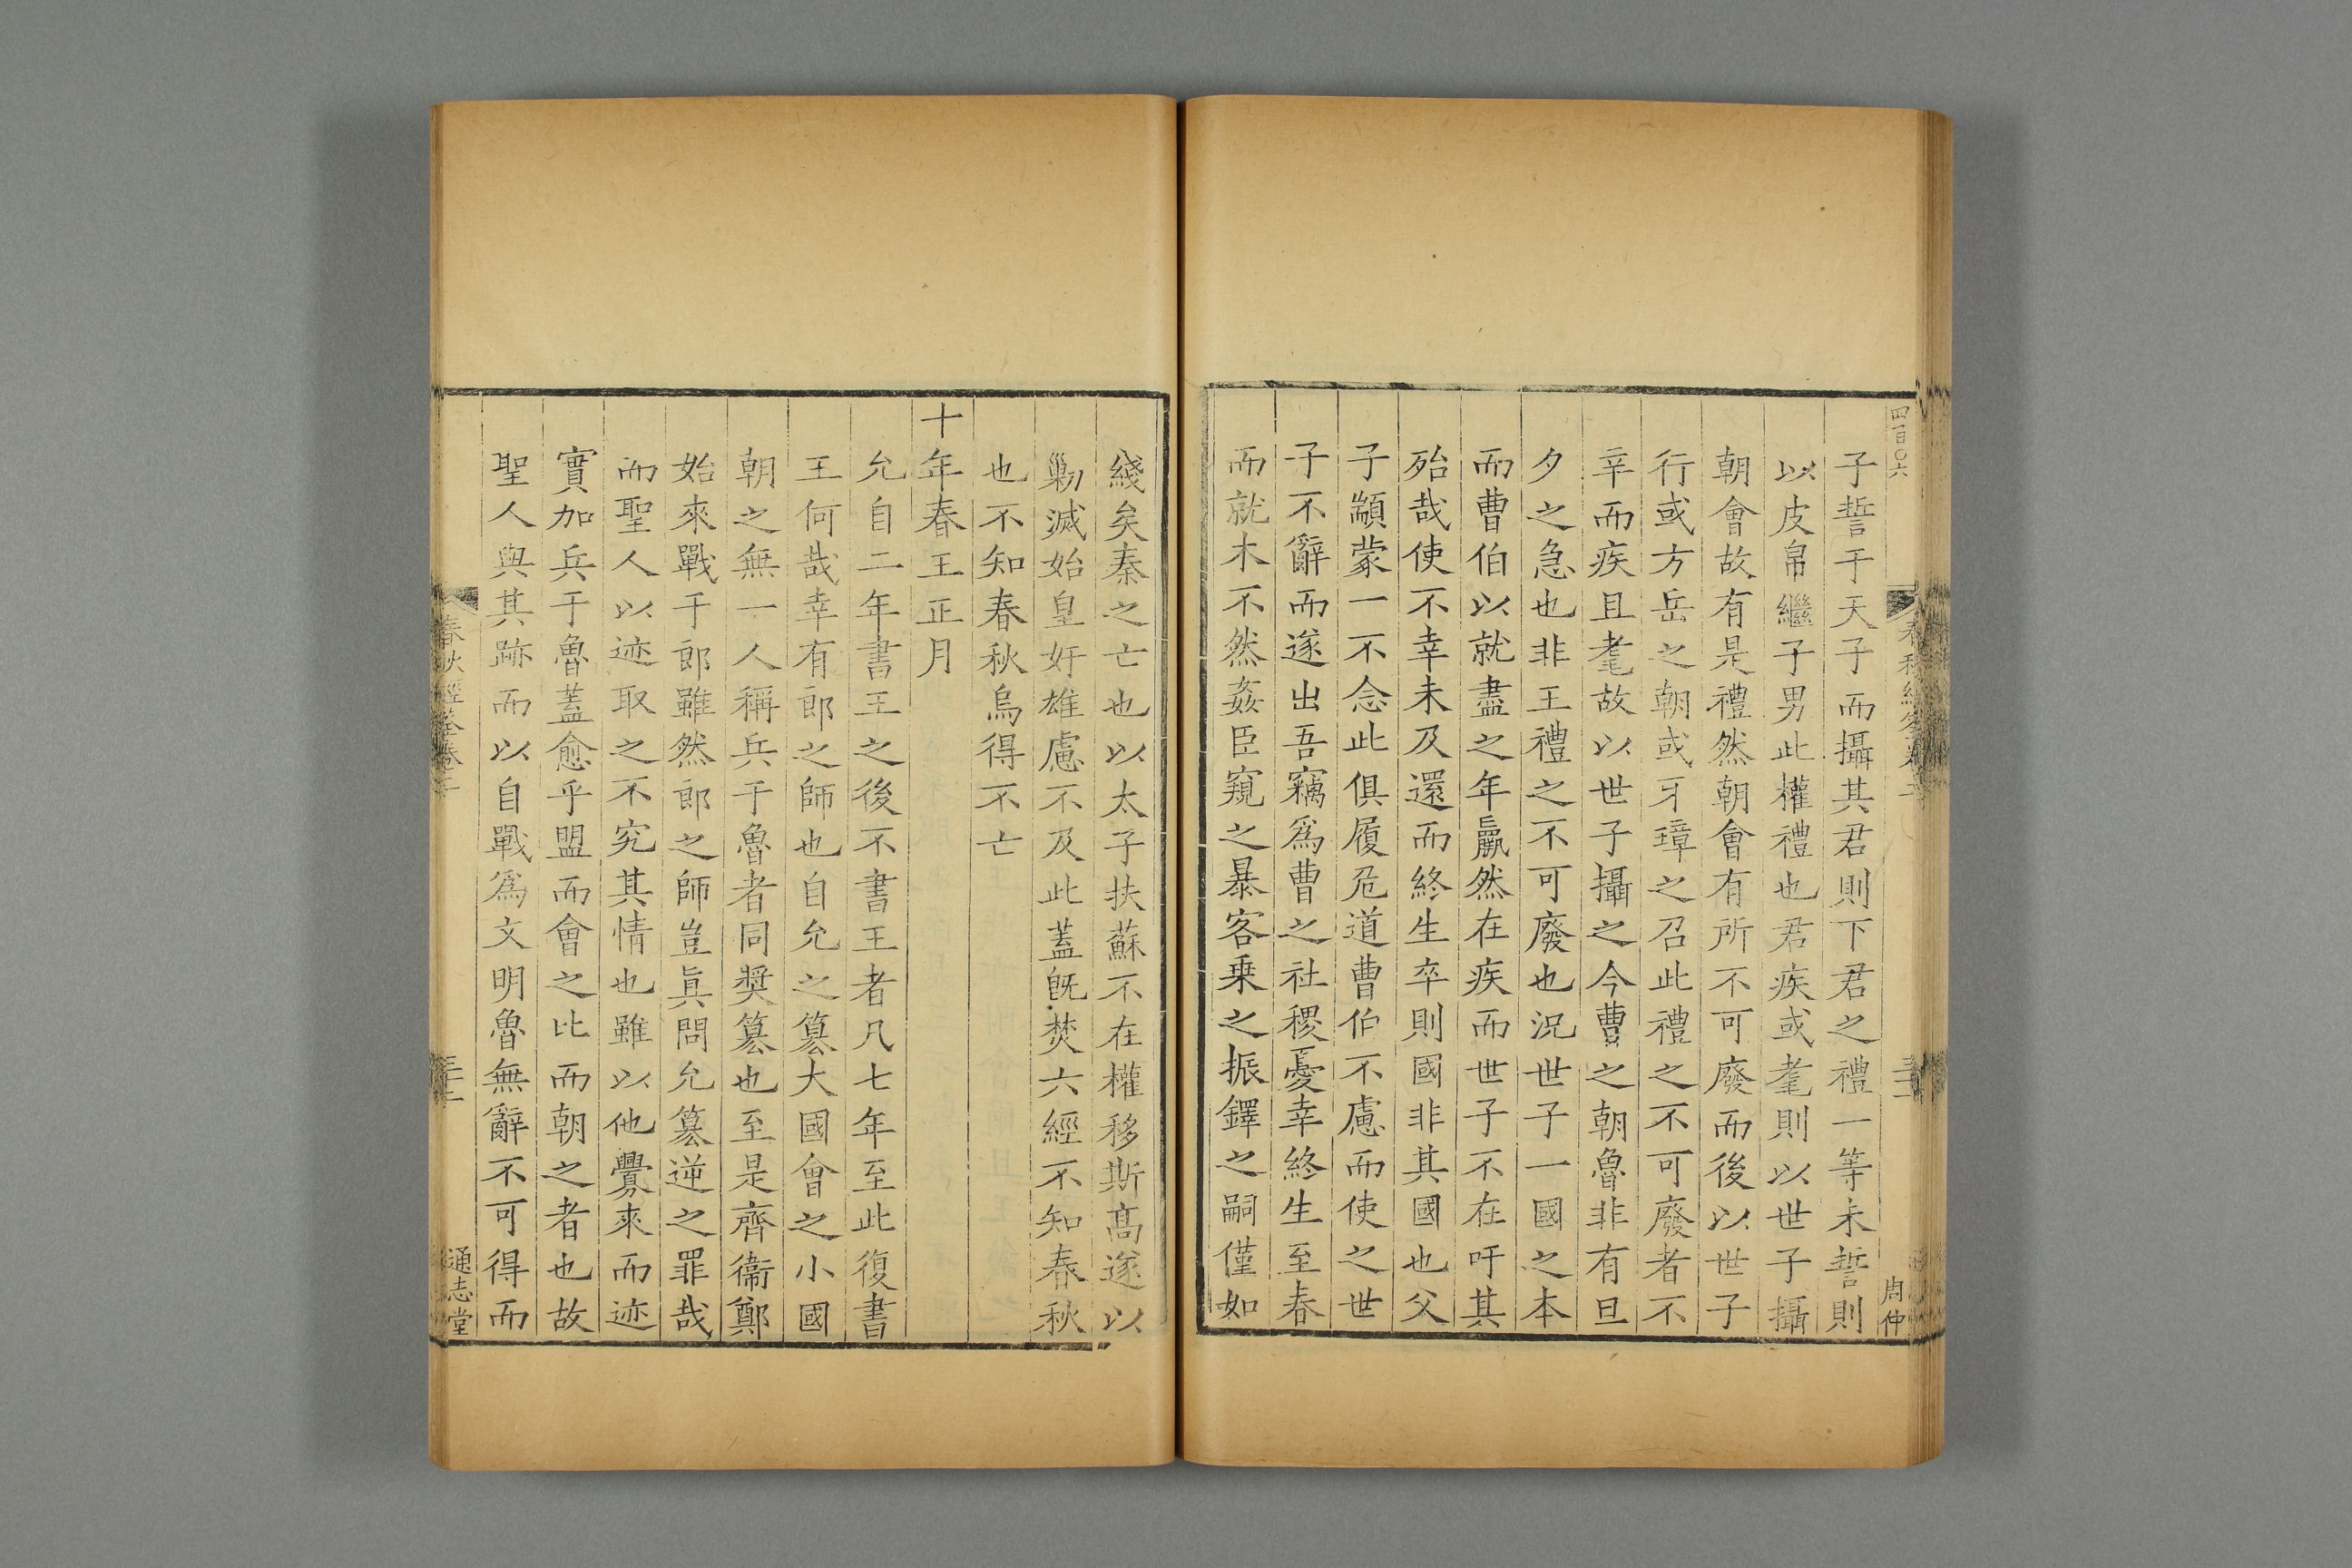 四百〇六
周仲
子誓于天子而攝其君則下君之禮一等未誓則
以皮帛繼子男此權禮也君疾或耄則以世子攝
朝會故有是禮然朝會有所不可廢而後以世子
行或方岳之朝或牙璋之召此禮之不可廢者不
幸而疾且耄故以世子攝之今曹之朝魯非有旦
夕之急也非王禮之不可廢也況世子一國之本
而曹伯以就盡之年羸然在疾而世子不在吁其
殆哉使不幸未及還而終生卒則國非其國也父
子顓蒙一不念此俱履危道曹伯不慮而使之世
子不辭而遂出吾竊爲曹之社稷憂幸終生至春
而就木不然姦臣窺之暴客乗之振鐸之嗣僅如
綫矣秦之亡也以太子扶蘇不在權移斯髙遂以
勦滅始皇奸雄慮不及此蓋旣焚六經不知春秋
也不知春秋烏得不亡
十年春王正月
允自二年書王之後不書王者凡七年至此復書
王何哉幸有郎之師也自允之簒大國會之小國
朝之無一人稱兵于魯者同奬簒也至是齊衞鄭
始來戰于郎雖然郎之師豈眞問允簒逆之罪哉
而聖人以迹取之不究其情也雖以他釁來而迹
實加兵于魯蓋愈乎盟而會之比而朝之者也故
聖人與其跡而以自戰爲文明魯無辭不可得而
春秋經筌卷二
三十一
通志堂